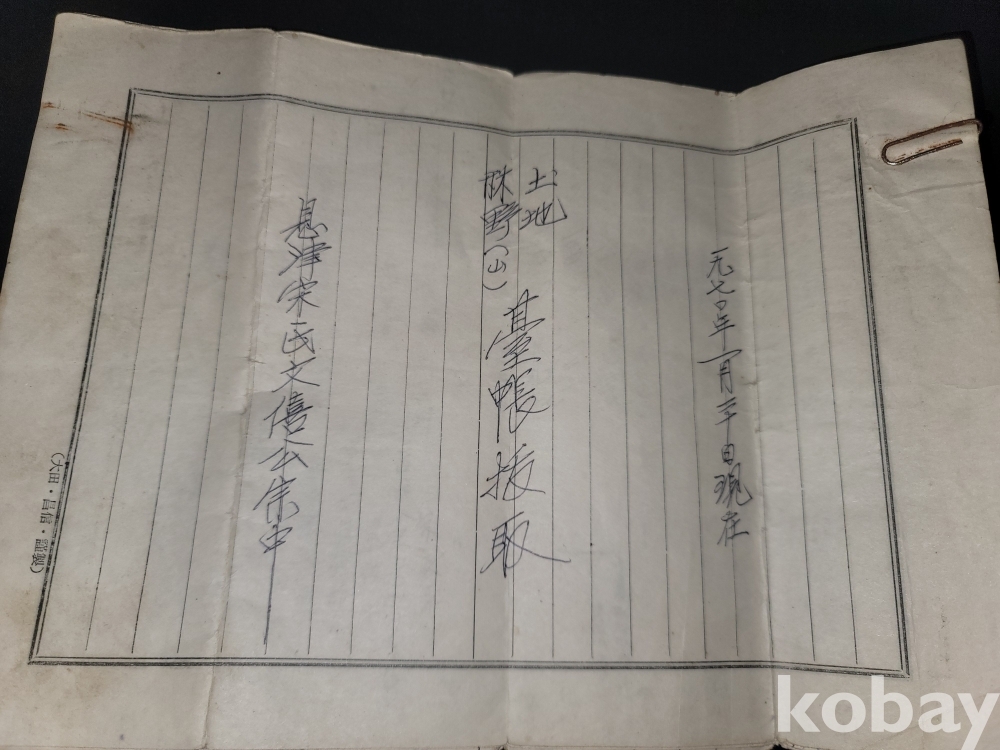 一九七〇年一月二十日現在
土地
林野(山)
臺帳拔取
恩津宋氏文僖公宗中
(大田・昌信・謹製)
kobay